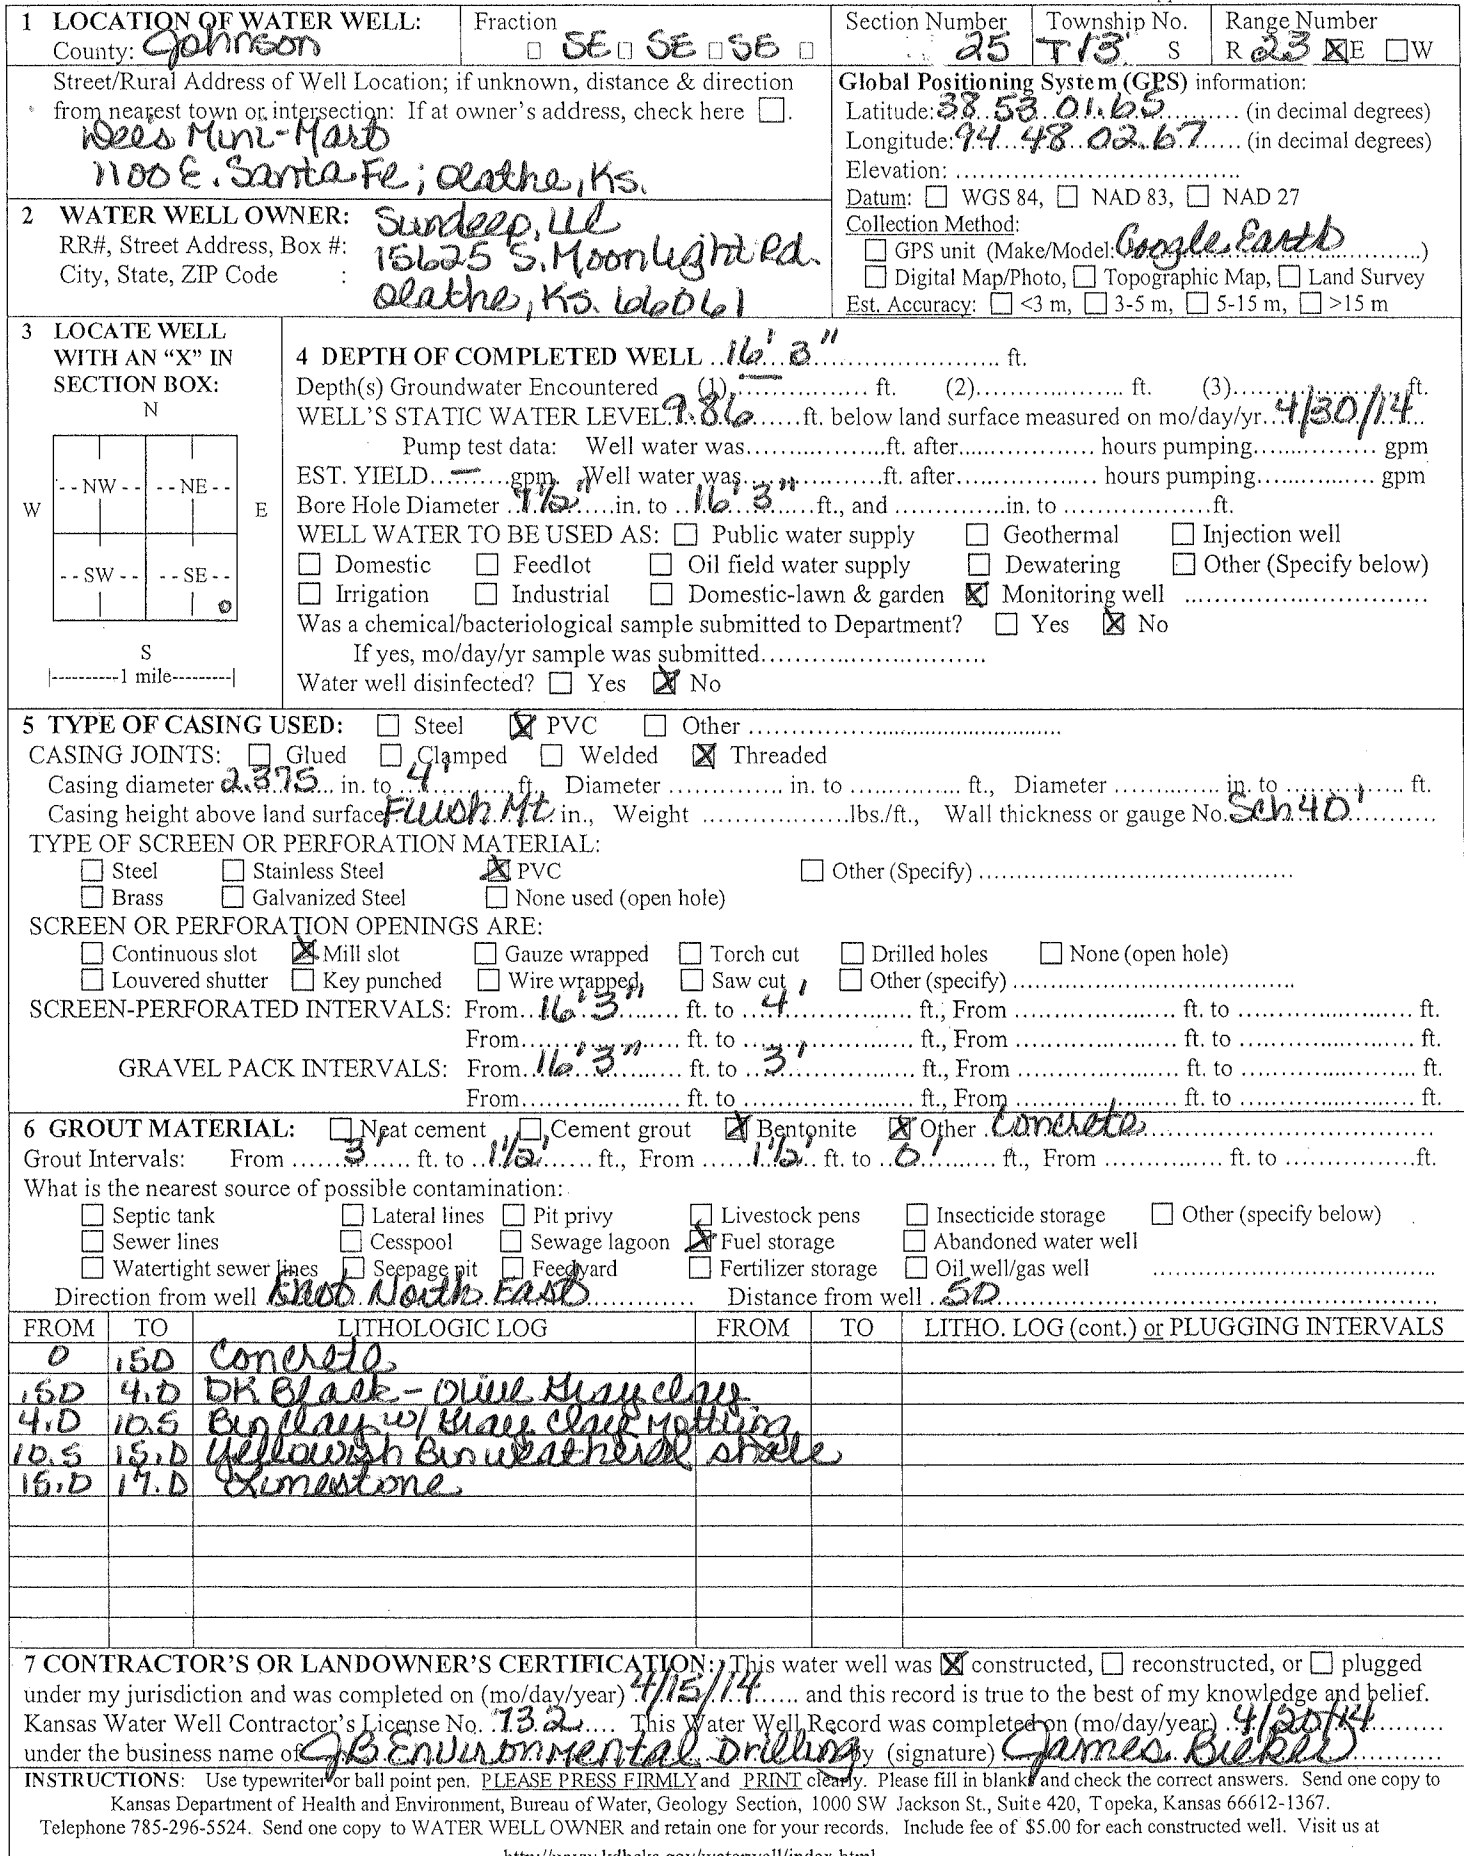 1 LOCATION OF WATER WELL: Fraction Section Number Township No. Range Number
County: Johnson □ SE □ SE □ SE □ 25 T 13 S R 23 ☒E □W
Street/Rural Address of Well Location; if unknown, distance & direction
from nearest town or intersection: If at owner's address, check here □.
Dees Mini-Mart
1100 E. Santa Fe; Olathe, Ks.
Global Positioning System (GPS) information:
Latitude: 38 53 01.65 (in decimal degrees)
Longitude: 94 48 02.67 (in decimal degrees)
Elevation:
Datum: □ WGS 84, □ NAD 83, □ NAD 27
Collection Method:
□ GPS unit (Make/Model: Google Earth)
□ Digital Map/Photo, □ Topographic Map, □ Land Survey
Est. Accuracy: □ <3 m, □ 3-5 m, □ 5-15 m, □ >15 m
2 WATER WELL OWNER: Sundeep, LLC
RR#, Street Address, Box #: 15625 S. Moonlight Rd.
City, State, ZIP Code : Olathe, Ks. 66061
3 LOCATE WELL
WITH AN "X" IN
SECTION BOX:
N
--NW-- --NE--
W E
--SW-- --SE--
S
|----------1 mile---------|
4 DEPTH OF COMPLETED WELL 16' 3" ft.
Depth(s) Groundwater Encountered (1) — ft. (2) ft. (3) ft.
WELL'S STATIC WATER LEVEL 9.86 ft. below land surface measured on mo/day/yr. 4/30/14
Pump test data: Well water was ft. after hours pumping gpm
EST. YIELD — gpm. Well water was ft. after hours pumping gpm
Bore Hole Diameter 7½" in. to 16' 3" ft., and in. to ft.
WELL WATER TO BE USED AS: □ Public water supply □ Geothermal □ Injection well
□ Domestic □ Feedlot □ Oil field water supply □ Dewatering □ Other (Specify below)
□ Irrigation □ Industrial □ Domestic-lawn & garden ☒ Monitoring well
Was a chemical/bacteriological sample submitted to Department? □ Yes ☒ No
If yes, mo/day/yr sample was submitted
Water well disinfected? □ Yes ☒ No
5 TYPE OF CASING USED: □ Steel ☒ PVC □ Other
CASING JOINTS: □ Glued □ Clamped □ Welded ☒ Threaded
Casing diameter 2.375 in. to 4' ft., Diameter in. to ft., Diameter in. to ft.
Casing height above land surface Flush Mt in., Weight lbs./ft., Wall thickness or gauge No. Sch 40
TYPE OF SCREEN OR PERFORATION MATERIAL:
□ Steel □ Stainless Steel ☒ PVC □ Other (Specify)
□ Brass □ Galvanized Steel □ None used (open hole)
SCREEN OR PERFORATION OPENINGS ARE:
□ Continuous slot ☒ Mill slot □ Gauze wrapped □ Torch cut □ Drilled holes □ None (open hole)
□ Louvered shutter □ Key punched □ Wire wrapped □ Saw cut □ Other (specify)
SCREEN-PERFORATED INTERVALS: From 16' 3" ft. to 4' ft., From ft. to ft.
From ft. to ft., From ft. to ft.
GRAVEL PACK INTERVALS: From 16' 3" ft. to 3' ft., From ft. to ft.
From ft. to ft., From ft. to ft.
6 GROUT MATERIAL: □ Neat cement □ Cement grout ☒ Bentonite ☒ Other Concrete
Grout Intervals: From 3' ft. to 1½' ft., From 1½' ft. to 0' ft., From ft. to ft.
What is the nearest source of possible contamination:
□ Septic tank □ Lateral lines □ Pit privy □ Livestock pens □ Insecticide storage □ Other (specify below)
□ Sewer lines □ Cesspool □ Sewage lagoon ☒ Fuel storage □ Abandoned water well
□ Watertight sewer lines □ Seepage pit □ Feedyard □ Fertilizer storage □ Oil well/gas well
Direction from well East North East Distance from well 50
FROM TO LITHOLOGIC LOG FROM TO LITHO. LOG (cont.) or PLUGGING INTERVALS
0 .50 Concrete
.50 4.0 DK Black - Olive Gray clay
4.0 10.5 Brn Clay w/ Gray Clay Mottling
10.5 15.0 Yellowish Brn weathered shale
15.0 17.0 Limestone
7 CONTRACTOR'S OR LANDOWNER'S CERTIFICATION: This water well was ☒ constructed, □ reconstructed, or □ plugged
under my jurisdiction and was completed on (mo/day/year) 4/15/14 and this record is true to the best of my knowledge and belief.
Kansas Water Well Contractor's License No. 732 This Water Well Record was completed on (mo/day/year) 4/20/14
under the business name of JB Environmental Drilling by (signature) James Bieker
INSTRUCTIONS: Use typewriter or ball point pen. PLEASE PRESS FIRMLY and PRINT clearly. Please fill in blanks and check the correct answers. Send one copy to
Kansas Department of Health and Environment, Bureau of Water, Geology Section, 1000 SW Jackson St., Suite 420, Topeka, Kansas 66612-1367.
Telephone 785-296-5524. Send one copy to WATER WELL OWNER and retain one for your records. Include fee of $5.00 for each constructed well. Visit us at